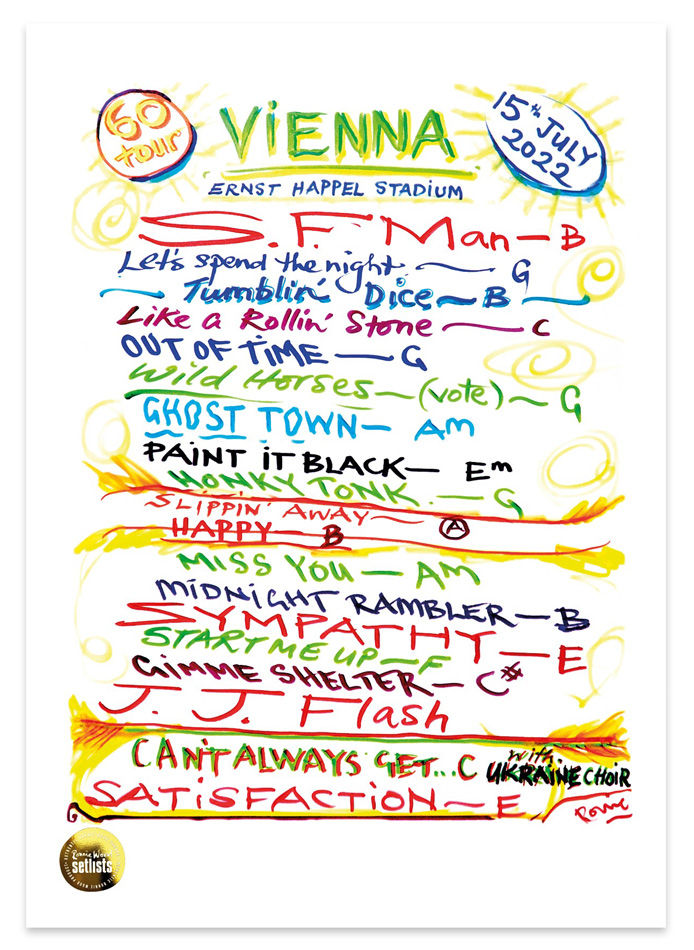 60 tour
VIENNA
15th JULY 2022
ERNST HAPPEL STADIUM
S.F. Man — B
Let's spend the night — G
— Tumblin' Dice — B —
Like a Rollin' Stone — C
OUT OF TIME — G
Wild Horses — (vote) — G
GHOST TOWN — Am
PAINT IT BLACK — Em
HONKY TONK — G
SLIPPIN' AWAY — A
HAPPY — B
MISS YOU — Am
MIDNIGHT RAMBLER — B
SYMPATHY — E
START ME UP — F
GIMME SHELTER — C#
J. J. Flash
CAN'T ALWAYS GET... C with UKRAINE CHOIR
G SATISFACTION — E Ronnie
Ronnie Wood
setlists